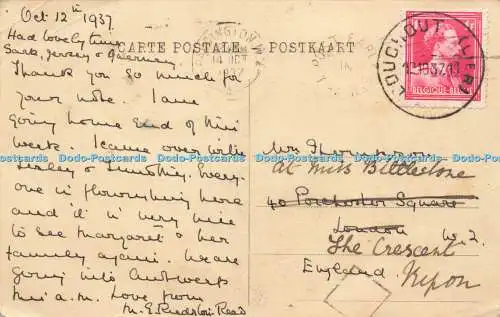 Oct 12th 1937
Had lovely time
Sark, Jersey & Guernsey
CARTE POSTALE - POSTKAART
Thank you so much for
your note. I am
going home end of this
week. I came over with
& Every
one is flourishing here
and it is very nice
to see Margaret & her
family again. We are
going into Antwerp
this a.m. Love from
M. E. Read
PADDINGTON
14 OCT
1937
BOUCHOUT (LIER)
12 10 37
BELGIQUE-BELGIE
Mrs Thompson
at Miss
40 Porchester Square
London W.2.
The Crescent
England Ripon
Dodo-Postcards Dodo-Postcards Dodo-Postcards Dodo-Postcards Dodo-Postcards Dodo-Postcards